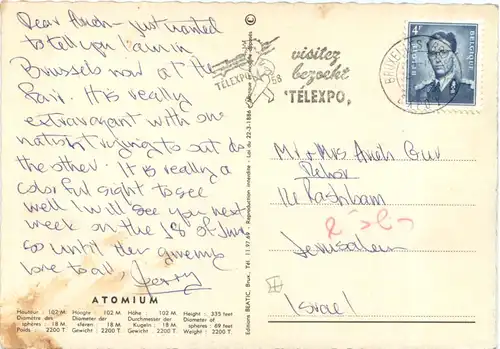 Dear Arieh - just wanted
to tell you I am in
Brussels now at the
fair. It is really
extravagant with one
nation trying to out do
the other. It is really a
color ful sight to see
well I will see you next
week on the 18 of June
so until then giving
love to all, Jerry
ATOMIUM
Hauteur : 102 M.
Diamètre des
sphères : 18 M.
Poids : 2200 T.
Hoogte : 102 M.
Diameter der
sferen : 18 M.
Gewicht : 2200 T.
Höhe : 102 M.
Durchmesser der
Kugeln : 18 M.
Gewicht : 2200 T.
Height : 335 feet
Diameter of
spheres : 69 feet
Weight : 2200 T.
Editions BEATIC, Brux., Tél. 11.97.69 - Reproduction interdite - Loi du 22-3-1886
©
TÉLEXPO
58
visitez
bezoekt
"TÉLEXPO"
4F
BELGIQUE
BELGIE
BRUXELLES
Mr + Mrs Arieh Gur
14 Rashbam
Jerusalem
Israel